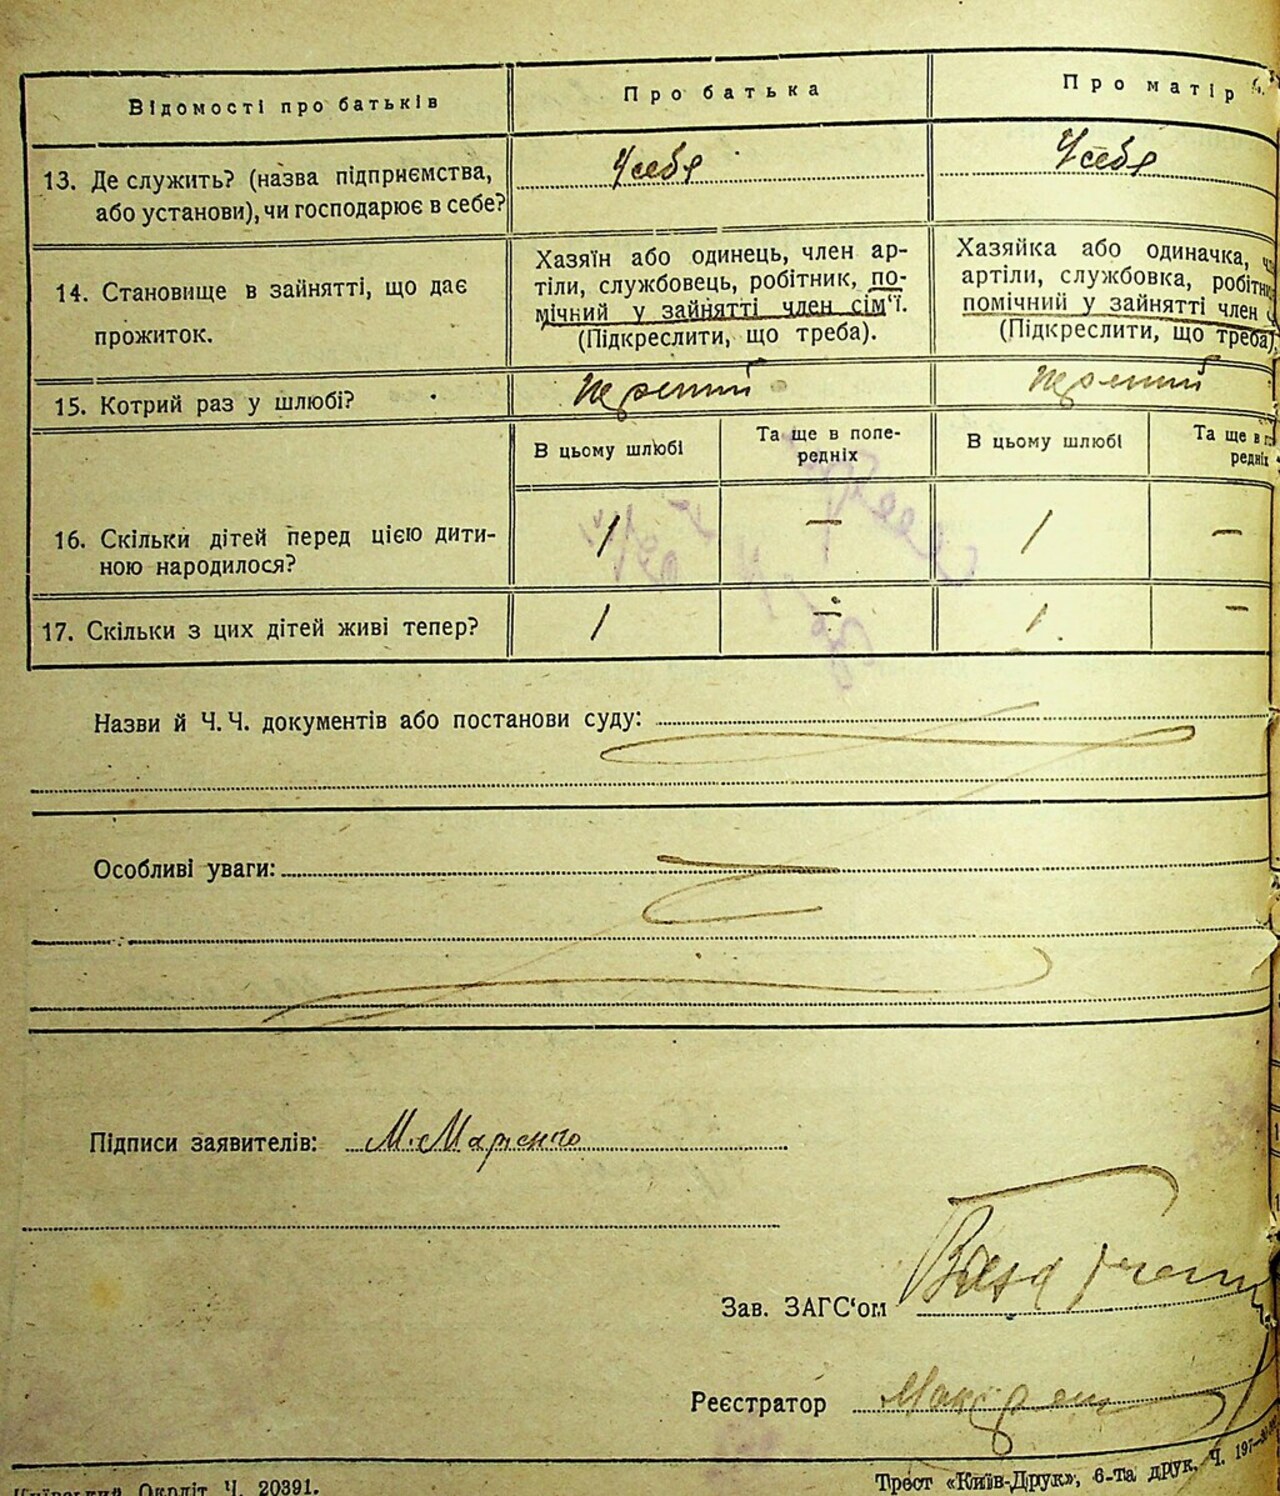 Відомості про батьків Про батька Про матір
13. Де служить? (назва підприємства, У себя У себя
або установи), чи господарює в себе?
14. Становище в зайнятті, що дає
прожиток.
Хазяїн або одинець, член ар-
тіли, службовець, робітник, по-
мічний у зайнятті член сім'ї.
(Підкреслити, що треба).
Хазяйка або одиначка,
артіли, службовка,
помічний у зайнятті член
(Підкреслити, що треба)
15. Котрий раз у шлюбі?
В цьому шлюбі Та ще в попе-
редніх
В цьому шлюбі Та ще в
редніх
16. Скільки дітей перед цією дити- 1 — 1 —
ною народилося?
17. Скільки з цих дітей живі тепер? 1 — 1 —
Назви й Ч.Ч. документів або постанови суду:
Особливі уваги:
Підписи заявителів: М. Марченко
Зав. ЗАГС'ом
Реєстратор
Київський Окрліт Ч. 20391.
Трест «Київ-Друк», 6-та друк. Ч.